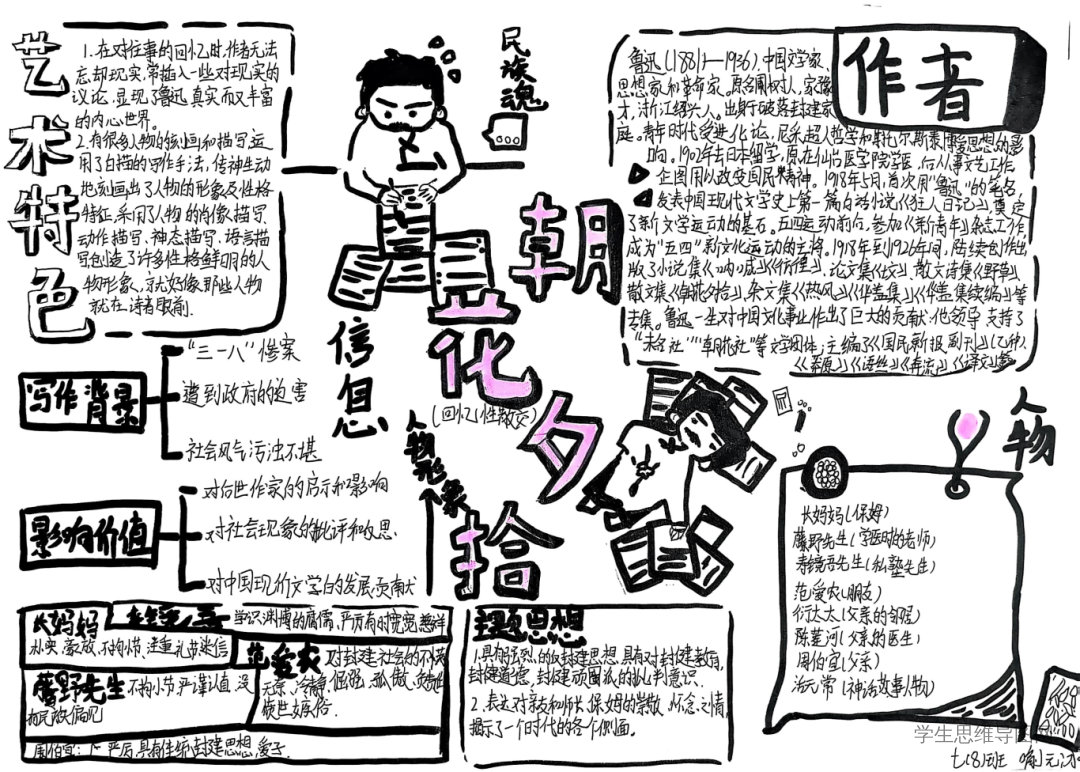 艺术特色
1.在对往事的回忆时,作者无法
忘却现实,常插入一些对现实的
议论,显现了鲁迅真实而又丰富
的内心世界。
2.有很多人物的刻画和描写运
用了白描的写作手法,传神生动
地刻画出了人物的形象及性格
特征,采用了人物的肖像描写,
动作描写,神态描写,语言描
写创造了许多性格鲜明的人
物形象,就好像那些人物
就在读者眼前.
民族魂
...
作者
鲁迅(1881—1936),中国文学家、
思想家和革命家。原名周树人,家豫
才,浙江绍兴人。出身于破落封建家
庭。青年时代受进化论,尼采超人哲学和托尔斯泰博爱思想的影
响。1902年去日本留学,原在仙台医学院学医,后从事文艺工作,
企图用以改变国民精神。1918年5月,首次用“鲁迅”的笔名,
发表中国现代文学史上第一篇白话小说《狂人日记》,奠定
了新文学运动的基石。五四运动前后,参加《新青年》杂志工作,
成为“五四”新文化运动的主将。1918年到1926年间,陆续创作出
版了小说集《呐喊》《彷徨》、论文集《坟》、散文诗集《野草》、
散文集《朝花夕拾》、杂文集《热风》《华盖集》《华盖集续编》等
专集。鲁迅一生对中国文化事业作出了巨大的贡献:他领导支持了
“未名社”“朝花社”等文学团体;主编了《国民新报副刊》(乙种)、
《莽原》《语丝》《奔流》《译文》等
朝花夕拾
(回忆性散文)
信息
写作背景
“三一八”惨案
遭到政府的迫害
社会风气污浊不堪
影响价值
对后世作家的启示和影响
对社会现象的批评和反思
对中国现代文学的发展贡献
人物形象
长妈妈
朴实、豪放、不拘小节、注重礼节迷信
学识渊博的腐儒,严厉有时宽宽慈祥
藤野先生 不拘小节,严谨认真,没
有民族偏见
范爱农
对封建社会的不满
无奈、冷静、倔强、孤傲、
愤世嫉俗.
周伯宜: 严厉,具有传统封建思想,爱子
主题思想
1.具有强烈的反封建思想,具有对封建教育,
封建道德,封建顽固派的批判意识.
2.表达对亲友和师长,保姆的崇敬、怀念之情,
揭示了一个时代的各个侧面.
人物
长妈妈(保姆)
藤野先生(学医时的老师)
寿镜吾先生(私塾先生)
范爱农(朋友)
衍太太(父亲的邻居)
陈莲河(父亲的医生)
周伯宜(父亲)
活无常(神话故事人物)
学生思维导图
七(8)班